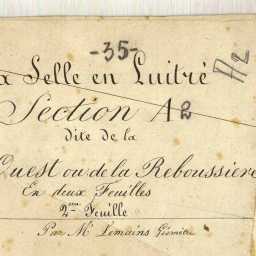 -35-
x Selle en Luitré
A2
Section A2
dite de la
Ouest ou de la Reboussière
En deux Feuilles
2ème Feuille
Par Mr Lemains Géomètre